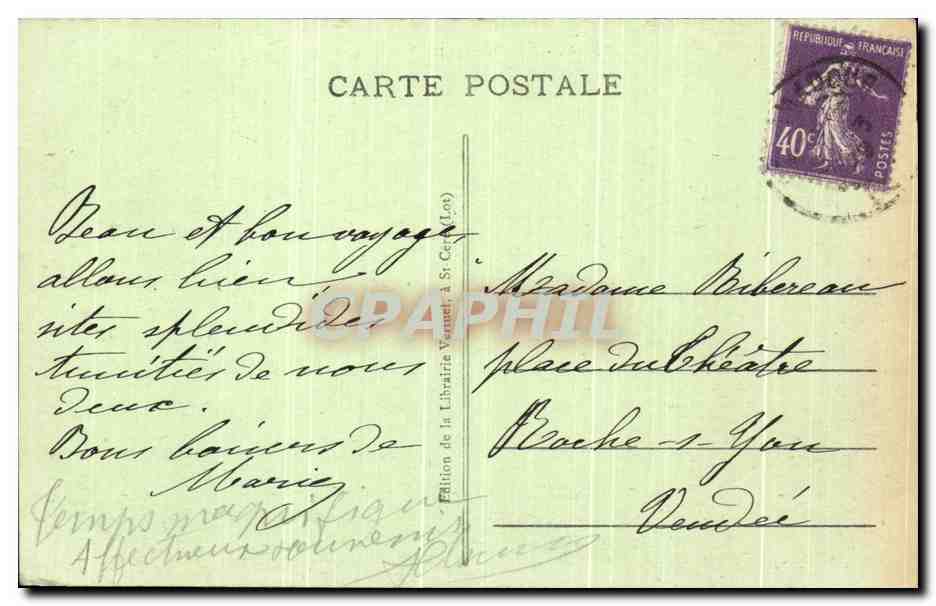 CARTE POSTALE
REPUBLIQUE FRANÇAISE
40c
POSTES
Beau et bon voyage,
allons bien
sites splendides
de nous
deux.
Bons baisers de
Marie
Temps magnifique
Affectueux souvenirs
Edition de la Librairie Vermel, à St Céré (Lot)
Madame Bibereau
place du Théâtre
Roche-s-Yon
Vendée
CPAPHIL